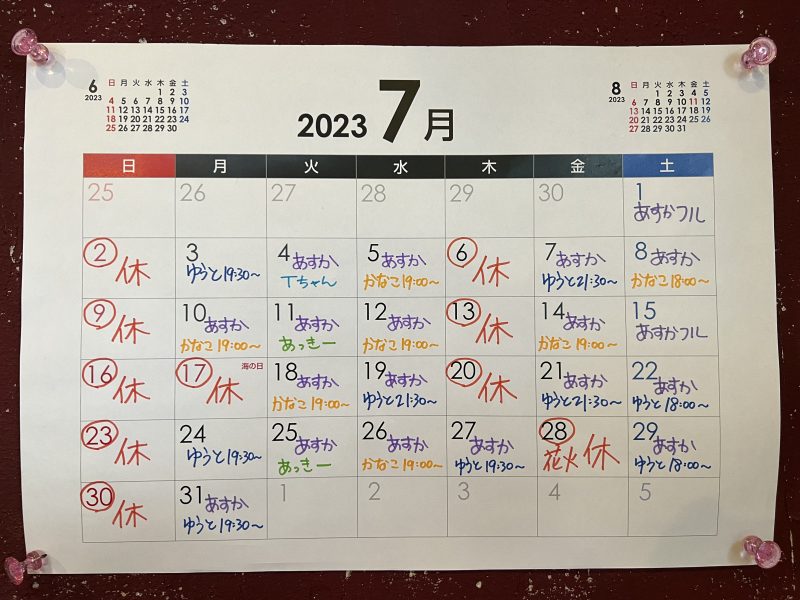 6
2023
日 月 火 水 木 金 土
1 2 3
4 5 6 7 8 9 10
11 12 13 14 15 16 17
18 19 20 21 22 23 24
25 26 27 28 29 30
2023 7月
8
2023
日 月 火 水 木 金 土
1 2 3 4 5
6 7 8 9 10 11 12
13 14 15 16 17 18 19
20 21 22 23 24 25 26
27 28 29 30 31
日 月 火 水 木 金 土
25 26 27 28 29 30 1
あすかフル
2 休 3 4 あすか 5 あすか 6 休 7 あすか 8 あすか
ゆうと19:30〜 Tちゃん かなこ19:00〜 ゆうと21:30〜 かなこ18:00〜
9 休 10 あすか 11 あすか 12 あすか 13 休 14 あすか 15
かなこ19:00〜 あっきー かなこ19:00〜 かなこ19:00〜 あすかフル
16 休 17 海の日 休 18 あすか 19 あすか 20 休 21 あすか 22 あすか
かなこ19:00〜 ゆうと21:30〜 ゆうと21:30〜 ゆうと18:00〜
23 休 24 25 あすか 26 あすか 27 あすか 28 花火 休 29 あすか
ゆうと19:30〜 あっきー かなこ19:00〜 ゆうと19:30〜 ゆうと18:00〜
30 休 31 あすか 1 2 3 4 5
ゆうと19:30〜